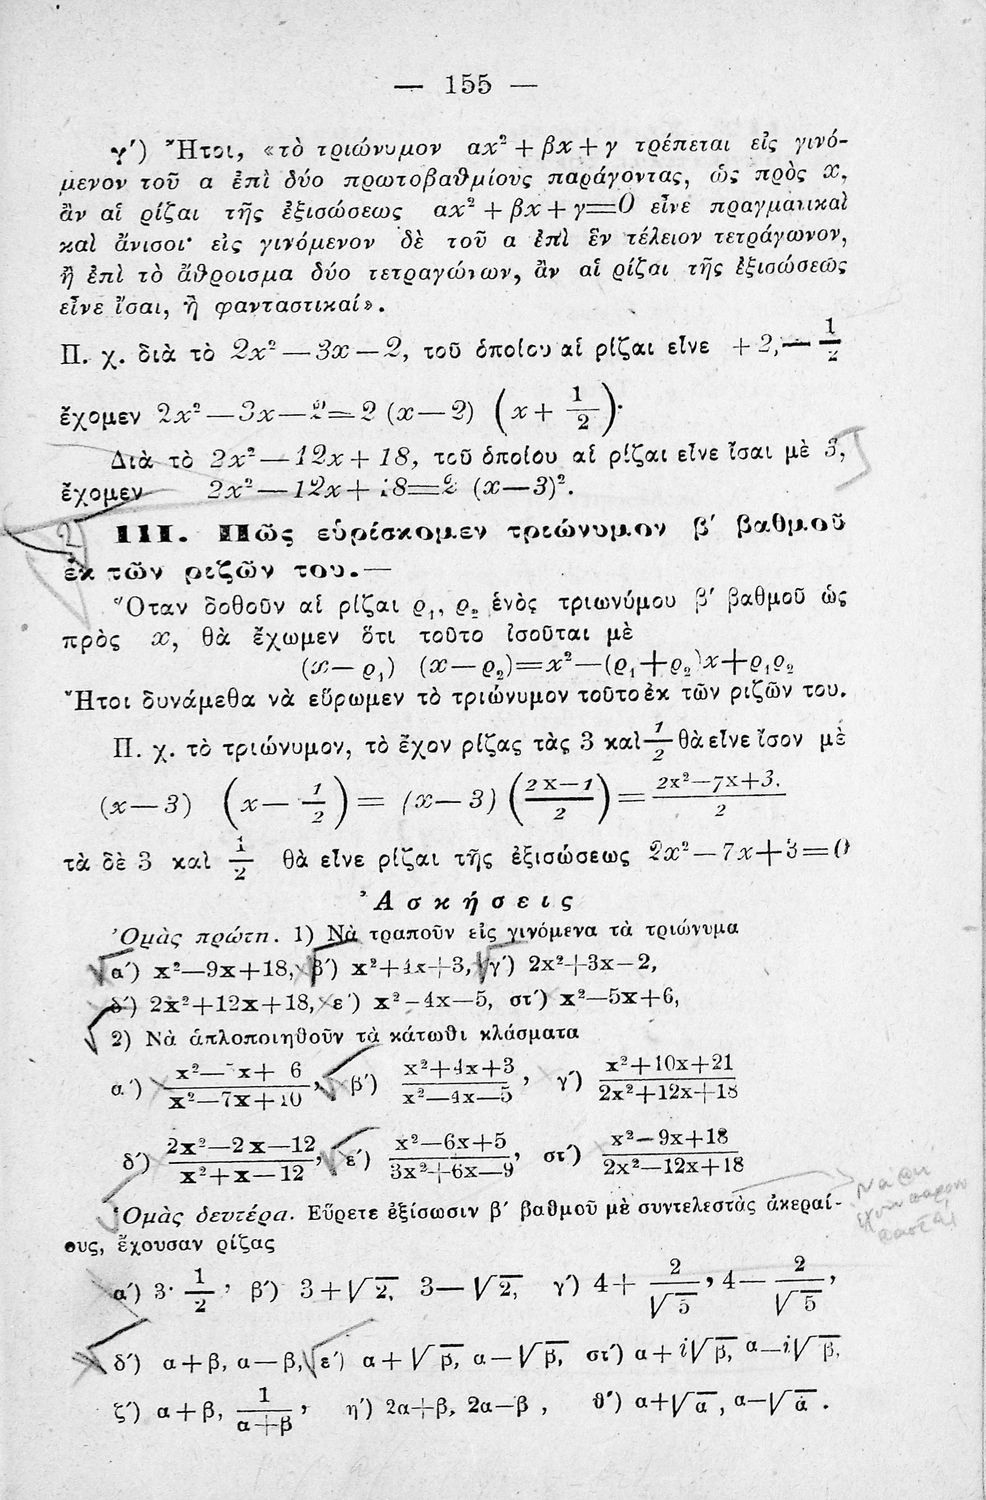 — 155 —
γ΄) Ἤτοι, «τὸ τριώνυμον αx² + βx + γ τρέπεται εἰς γινό-
μενον τοῦ α ἐπὶ δύο πρωτοβαθμίους παράγοντας, ὡς πρὸς x,
ἂν αἱ ρίζαι τῆς ἐξισώσεως αx² + βx + γ=0 εἶνε πραγματικαὶ
καὶ ἄνισοι· εἰς γινόμενον δὲ τοῦ α ἐπὶ ἓν τέλειον τετράγωνον,
ἢ ἐπὶ τὸ ἄθροισμα δύο τετραγώνων, ἂν αἱ ρίζαι τῆς ἐξισώσεως
εἶνε ἴσαι, ἢ φανταστικαί».
Π. χ. διὰ τὸ 2x² — 3x — 2, τοῦ ὁποίου αἱ ρίζαι εἶνε + 2, — 1/2
ἔχομεν 2x² — 3x — 2 = 2 (x — 2) (x + 1/2)·
Διὰ τὸ 2x² — 12x + 18, τοῦ ὁποίου αἱ ρίζαι εἶνε ἴσαι μὲ 3,
ἔχομεν 2x² — 12x + 18 = 2 (x — 3)².
2
III. Πῶς εὑρίσκομεν τριώνυμον β΄ βαθμοῦ
ἐκ τῶν ριζῶν του.—
Ὅταν δοθοῦν αἱ ρίζαι ϱ₁, ϱ₂ ἑνὸς τριωνύμου β΄ βαθμοῦ ὡς
πρὸς x, θὰ ἔχωμεν ὅτι τοῦτο ἰσοῦται μὲ
(x — ϱ₁) (x — ϱ₂) = x² — (ϱ₁ + ϱ₂)x + ϱ₁ϱ₂
Ἤτοι δυνάμεθα νὰ εὕρωμεν τὸ τριώνυμον τοῦτο ἐκ τῶν ριζῶν του.
Π. χ. τὸ τριώνυμον, τὸ ἔχον ρίζας τὰς 3 καὶ 1/2 θὰ εἶνε ἴσον μὲ
(x — 3) (x — 1/2) = (x — 3) (2x—1/2) = 2x²—7x+3./2
τὰ δὲ 3 καὶ 1/2 θὰ εἶνε ρίζαι τῆς ἐξισώσεως 2x² — 7x + 3 = 0
Ἀσκήσεις
Ὁμὰς πρώτη. 1) Νὰ τραποῦν εἰς γινόμενα τὰ τριώνυμα
α΄) x²—9x+18, β΄) x²+4x+3, γ΄) 2x²+3x—2,
δ΄) 2x²+12x+18, ε΄) x²–4x—5, στ΄) x²—5x+6,
2) Νὰ ἁπλοποιηθοῦν τὰ κάτωθι κλάσματα
α΄) x²— x+ 6/x²—7x+10, β΄) x²+4x+3/x²—4x—5, γ΄) x²+10x+21/2x²+12x+18
δ΄) 2x²—2x—12/x²+x—12, ε΄) x²—6x+5/3x²+6x—9, στ΄) x²–9x+18/2x²—12x+18
Ὁμὰς δευτέρα. Εὕρετε ἐξίσωσιν β΄ βαθμοῦ μὲ συντελεστὰς ἀκεραί-
ους, ἔχουσαν ρίζας
α΄) 3· 1/2, β΄) 3+√2, 3—√2, γ΄) 4+ 2/√5, 4— 2/√5,
δ΄) α+β, α—β, ε΄) α+√β, α—√β, στ΄) α+i√β, α—i√β,
ζ΄) α+β, 1/α+β, η΄) 2α+β, 2α—β, θ΄) α+√α, α—√α.